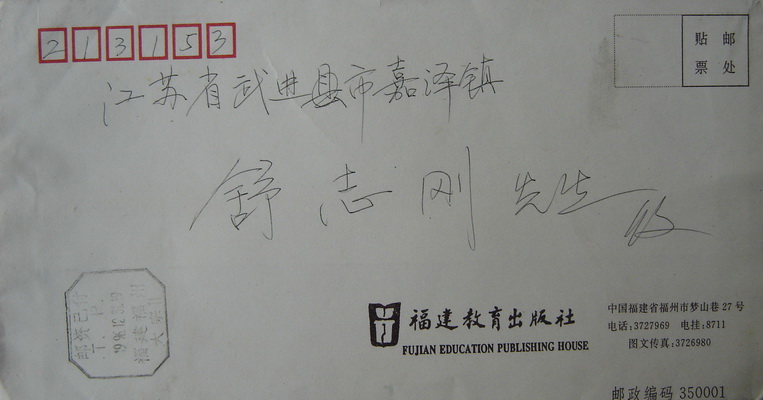 213153
贴 邮
票 处
江苏省武进县市嘉泽镇
舒志刚先生收
邮资已付
福建福州
福建教育出版社
FUJIAN EDUCATION PUBLISHING HOUSE
中国福建省福州市梦山巷27号
电话:3727969 电挂:8711
图文传真:3726980
邮政编码 350001